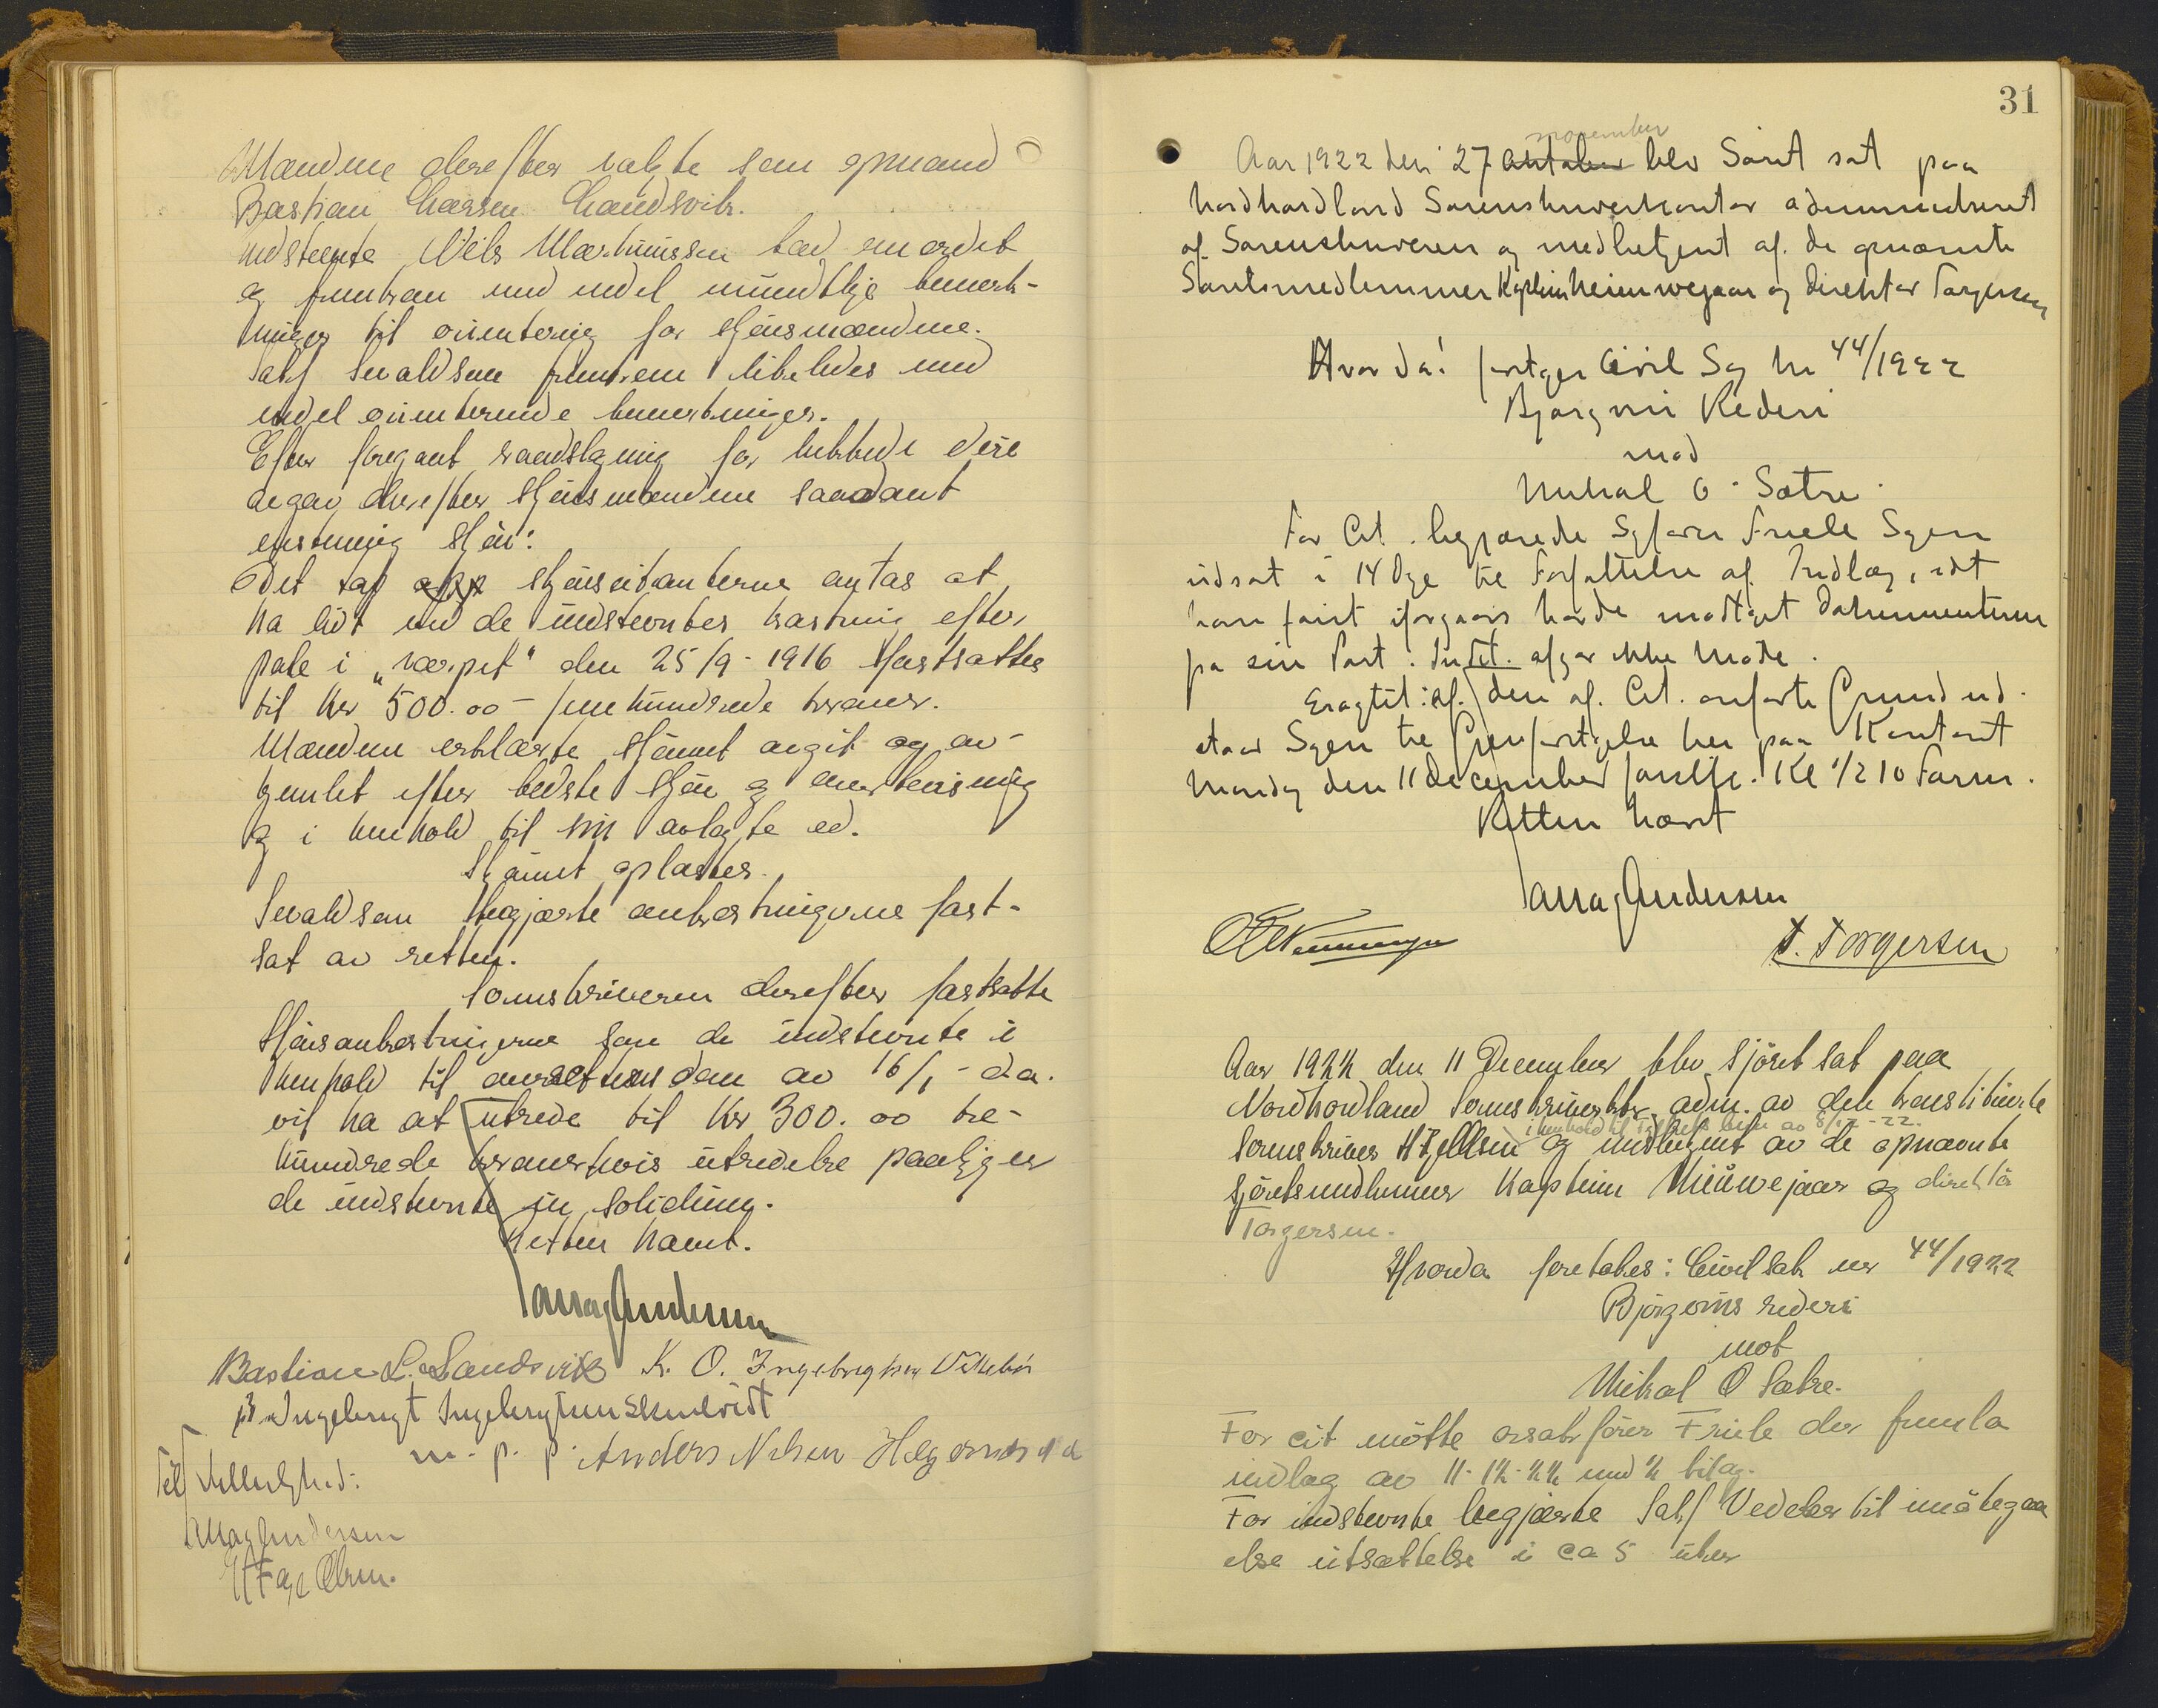 Mændene derefter valgte som opmand
Bastian Larsen Landsvik.
Indstevnte Nils Martinussen bad om ordet
og fremkom med endel mundtlige bemerk-
ninger til orientering for skjønsmændene.
Sakf Sevaldsen fremkom likeledes med
endel orienterende bemerkninger.
Efter foregaat raadslagning for lukkede døre
avgav derefter skjønsmændene saadant
enstemmig skjøn:
Det tap skjønscitanterne antas at
ha lidt ved de indstevntes kastning efter
pale i "værpet" den 25/9-1916 fastsættes
til Kr 500.00 - fem hundrede kroner.
Mændene erklærte skjønnet avgit og av-
hjemlet efter bedste skjøn og overbevisning
og i henhold til sin avlagte ed.
Skjønnet oplæstes.
Sevaldsen begjærte omkostningerne fast-
sat av retten.
Sorenskriveren derefter fastsatte
skjønsomkostningerne som de indstevnte i
henhold til overrettens dom av 16/1 - da.
vil ha at utrede til Kr 300.00 tre-
hundrede kroner hvis utredelse paaligger
de indstevnte in solidum.
Retten hævet.
Aarrag Andersen
Bastian L. Landsvik K. O. Ingebrigtsen Vikebø
Ingebrigt Ingebrigtsen
m. p. p. Anders Nilsen
Til Vitterlighed:
Aarrag Andersen
H Fage Olsen.
31
november
Aar 1922 den 27 oktober blev Søret sat paa
Nordhordland Sorenskriverkontor administreret
af Sorenskriveren og medbetjent af de opnævnte
Søretsmedlemmer Kaptein Nieuwejaar og Direktør Torgersen
Hvor da! foretoges Civil Sag Nr 44/1922
Bjørgvin Rederi
mod
Mikal O. Sætre.
For Cit. begjærede Sagfører Friele Sagen
udsat i 14 Dage til Forfattelse af Indlæg, idet
han først iforgaars havde modtaget Dokumenterne
fra sin Part. Indst. afgav ikke Møde.
Eragtet: Af den af Cit. anførte Grund ud-
staar Sagen til Gjenforetagelse her paa Kontoret
Mandag den 11 December førstk. Kl 1/2 10 Form.
Retten hævet
Aarrag Andersen
T. Torgersen
Aar 1922 den 11 December blev sjøret sat paa
Nordhordland Sorenskriverktr. adm. av den konstituerte
i henhold til brev av 8/12-22.
sorenskriver og medbetjent av de opnævnte
sjøretsmedlemmer Kaptein Nieuwejaar og direktør
Torgersen.
Hvorda foretokes: Civil sak nr 44/1922
Bjørgvins rederi
mot
Mikal O Sætre.
For cit møtte o.r.sakfører Friele der fremla
indlæg av 11-12-22 med 2 bilag.
For indstevnte begjærte Sakf Vedeler til imøtegaa
else utsættelse i ca 5 uker